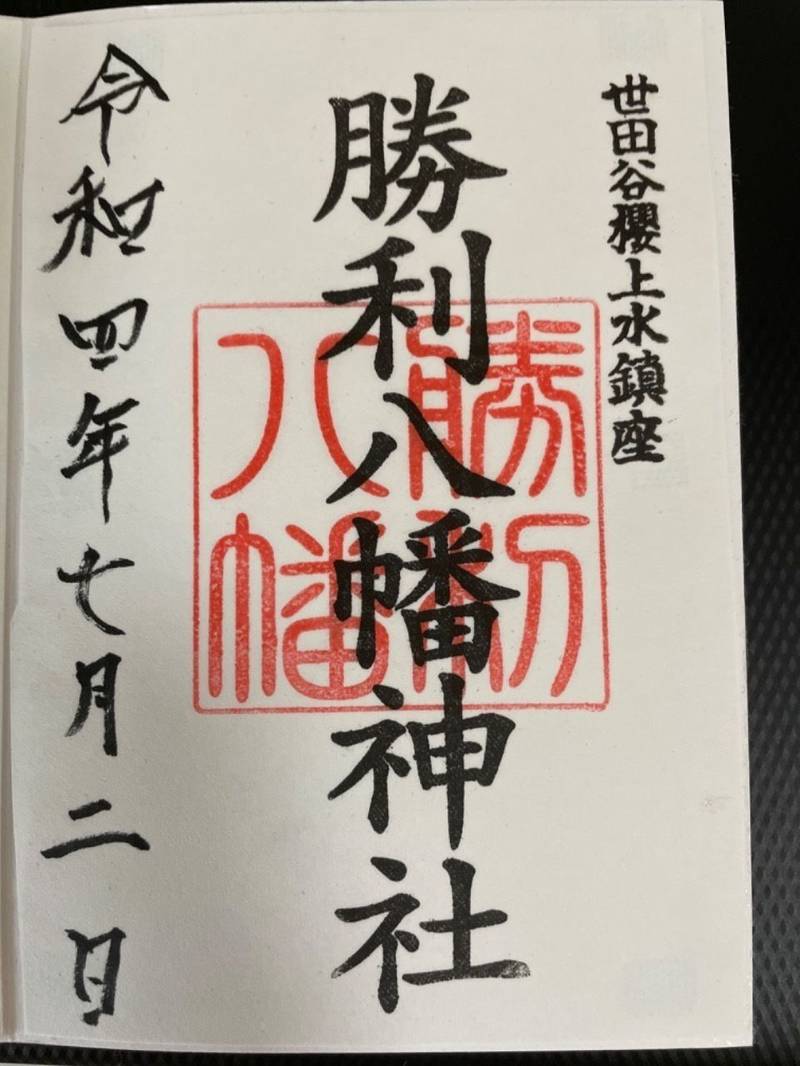 世田谷櫻上水鎮座
勝利八幡神社
勝利
八幡
令和四年七月二日